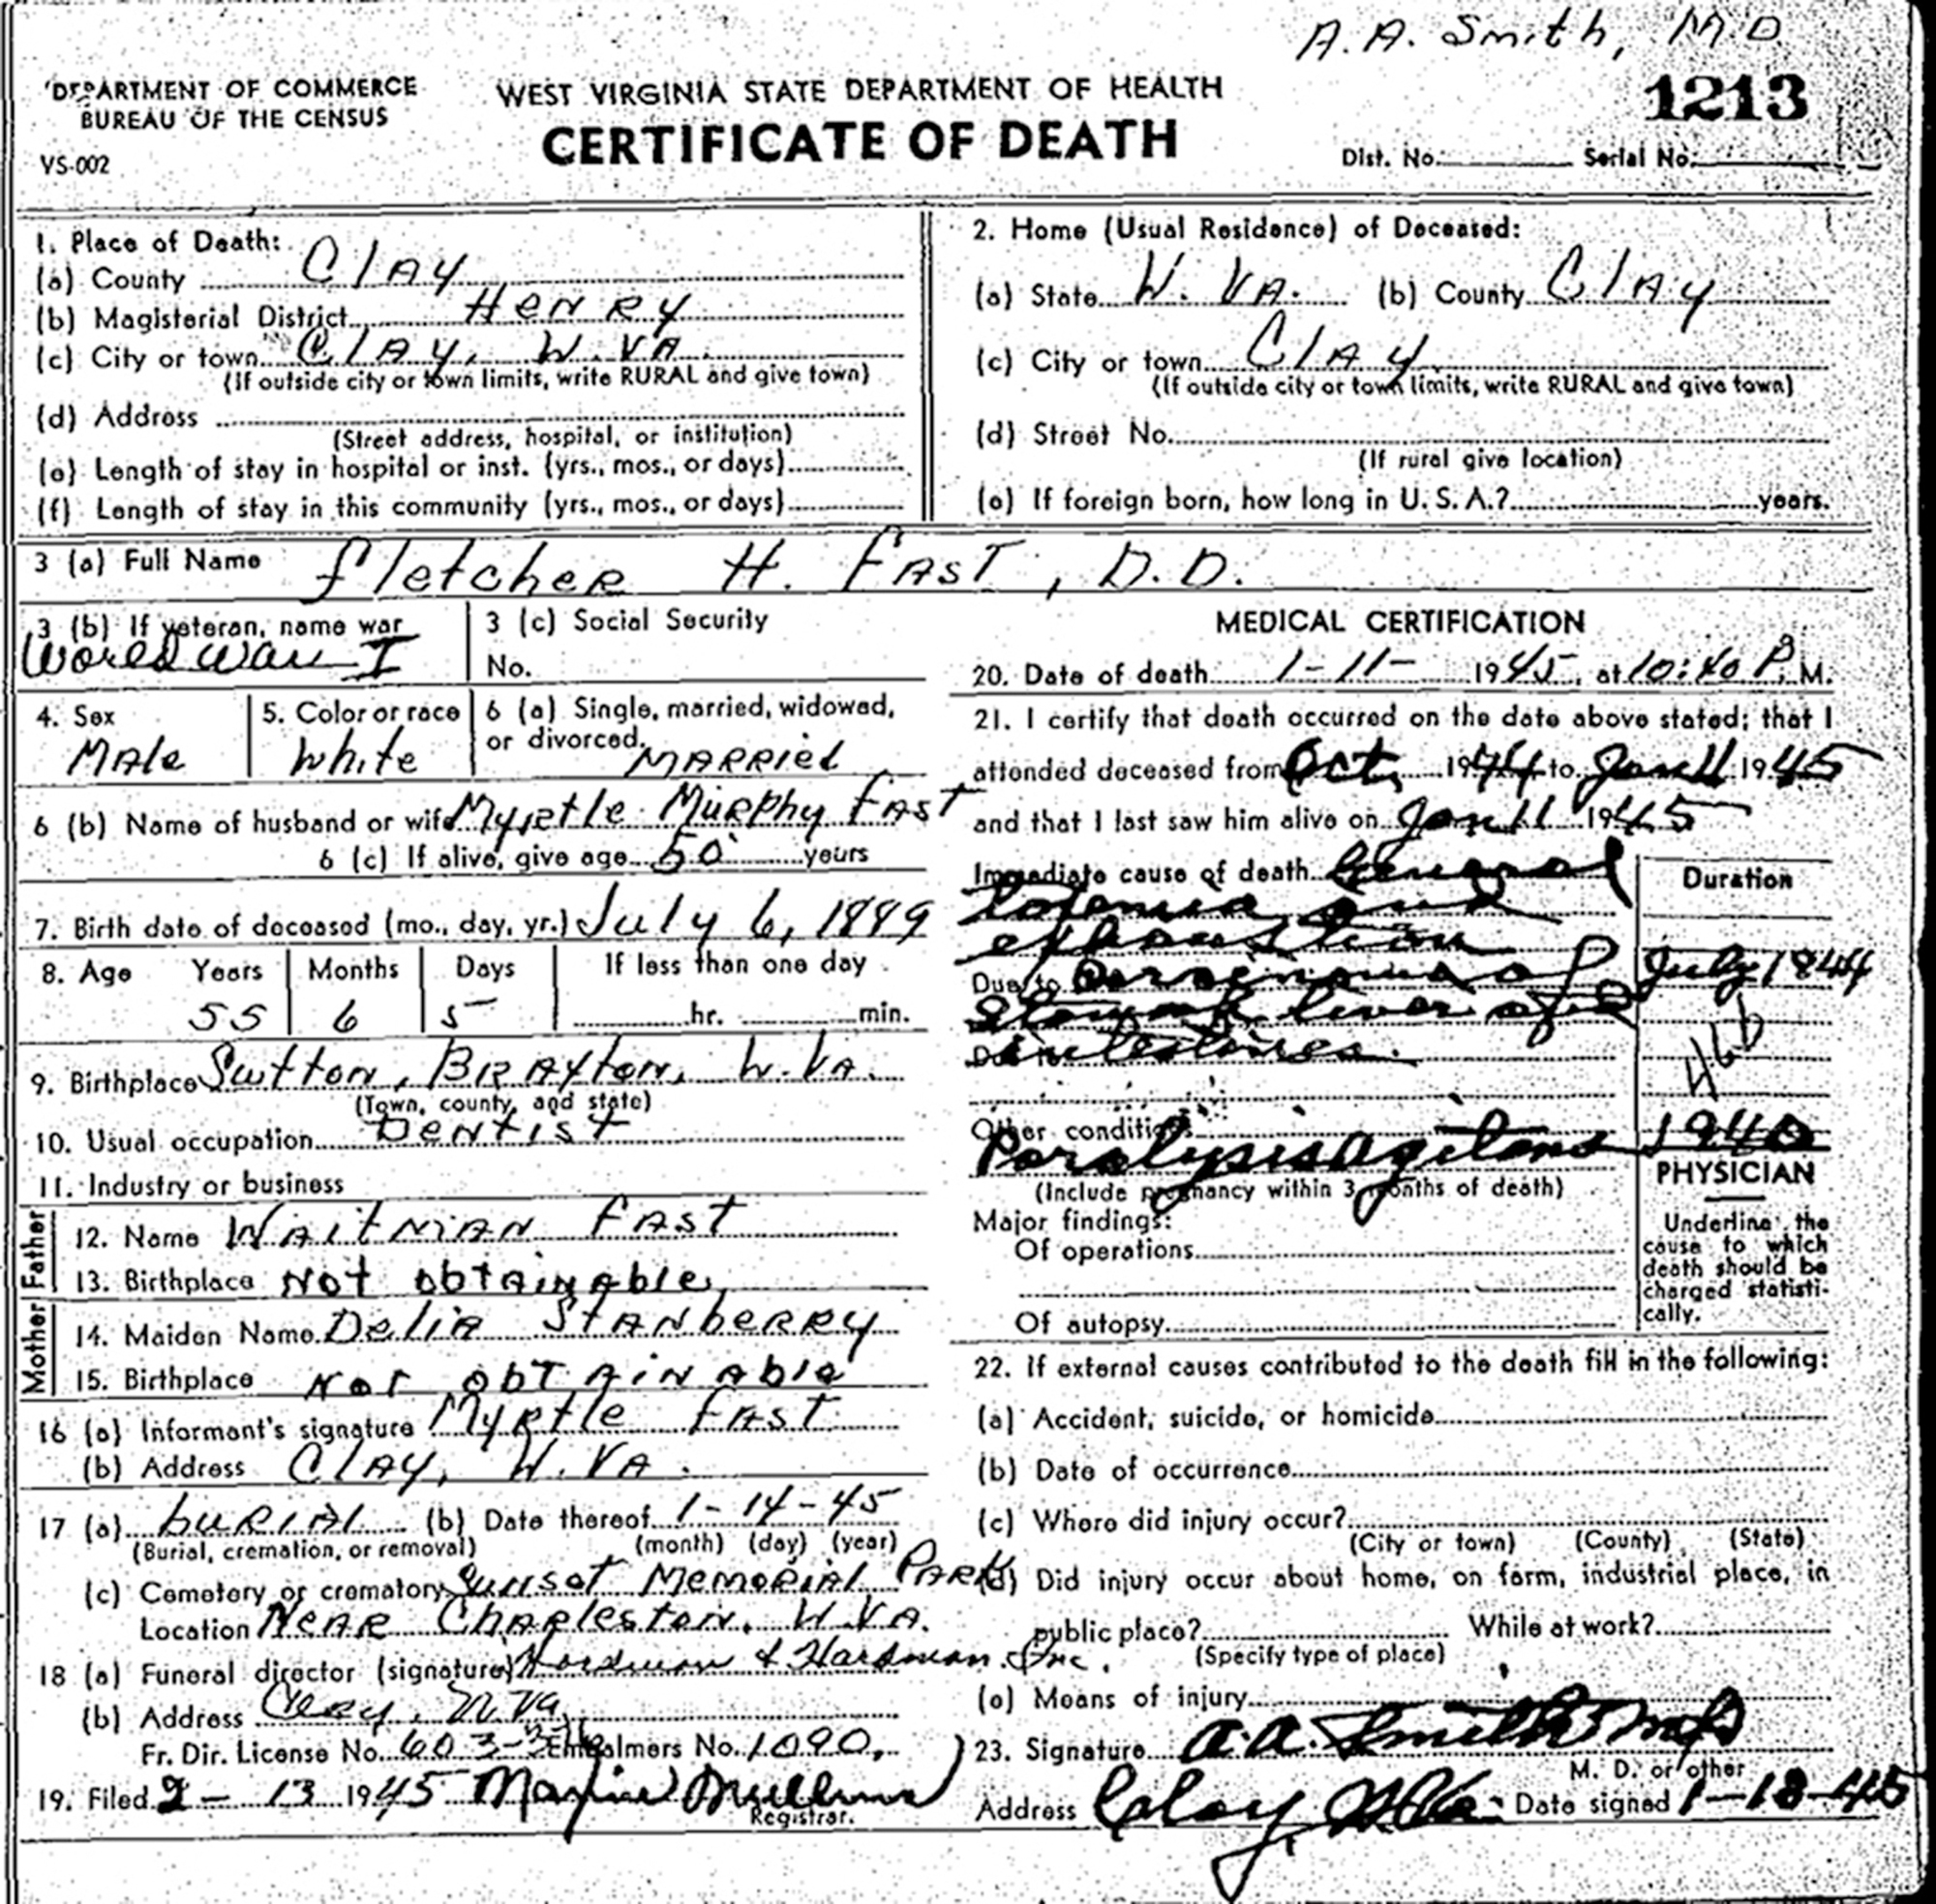 A. A. Smith, M.D.
DEPARTMENT OF COMMERCE
BUREAU OF THE CENSUS
VS-002
WEST VIRGINIA STATE DEPARTMENT OF HEALTH
CERTIFICATE OF DEATH
1213
Dist. No. Serial No.
1. Place of Death:
(a) County Clay
(b) Magisterial District Henry
(c) City or town Clay, W. Va.
(If outside city or town limits, write RURAL and give town)
(d) Address
(Street address, hospital, or institution)
(e) Length of stay in hospital or inst. (yrs., mos., or days)
(f) Length of stay in this community (yrs., mos., or days)
2. Home (Usual Residence) of Deceased:
(a) State W. Va. (b) County Clay
(c) City or town Clay
(If outside city or town limits, write RURAL and give town)
(d) Street No.
(If rural give location)
(e) If foreign born, how long in U. S. A.? years.
3 (a) Full Name Fletcher H. Fast, D.D.
3 (b) If veteran, name war
World War I
3 (c) Social Security
No.
4. Sex
Male
5. Color or race
White
6 (a) Single, married, widowed,
or divorced. Married
6 (b) Name of husband or wife Myrtle Murphy Fast
6 (c) If alive, give age 50 years
7. Birth date of deceased (mo., day, yr.) July 6, 1889
8. Age Years Months Days If less than one day
55 6 5 hr. min.
9. Birthplace Sutton, Braxton, W. Va.
(Town, county, and state)
10. Usual occupation Dentist
11. Industry or business
Father
12. Name Waitman Fast
13. Birthplace Not obtainable
Mother
14. Maiden Name Delia Stanberry
15. Birthplace Not obtainable
16 (a) Informant's signature Myrtle Fast
(b) Address Clay, W. Va.
17 (a) burial (b) Date thereof 1-14-45
(Burial, cremation, or removal) (month) (day) (year)
(c) Cemetery or crematory Sunset Memorial Park
Location Near Charleston, W. Va.
18 (a) Funeral director (signature) Hardman & Hardman Inc.
(b) Address Clay, W Va.
Fr. Dir. License No. 603- Embalmers No. 1090
19. Filed 2-13 1945 Maxine Mullins
Registrar.
MEDICAL CERTIFICATION
20. Date of death 1-11- 1945, at 10:40 P. M.
21. I certify that death occurred on the date above stated; that I
attended deceased from Oct, 1944 to Jan 11 1945
and that I last saw him alive on Jan 11 1945
Immediate cause of death General
Toxemia and
exhaustion
Duration
Due to Carcinoma of July 1944
Stomach liver and
Due to intestines.
46b
Other conditions
Paralysis agitans 1940
(Include pregnancy within 3 months of death)
Major findings:
Of operations
Of autopsy
PHYSICIAN
Underline the
cause to which
death should be
charged statisti-
cally.
22. If external causes contributed to the death fill in the following:
(a) Accident, suicide, or homicide
(b) Date of occurrence
(c) Where did injury occur?
(City or town) (County) (State)
(d) Did injury occur about home, on farm, industrial place, in
public place? While at work?
(Specify type of place)
(e) Means of injury
23. Signature A. A. Smith MD
M. D. or other
Address Clay W Va. Date signed 1-18-45